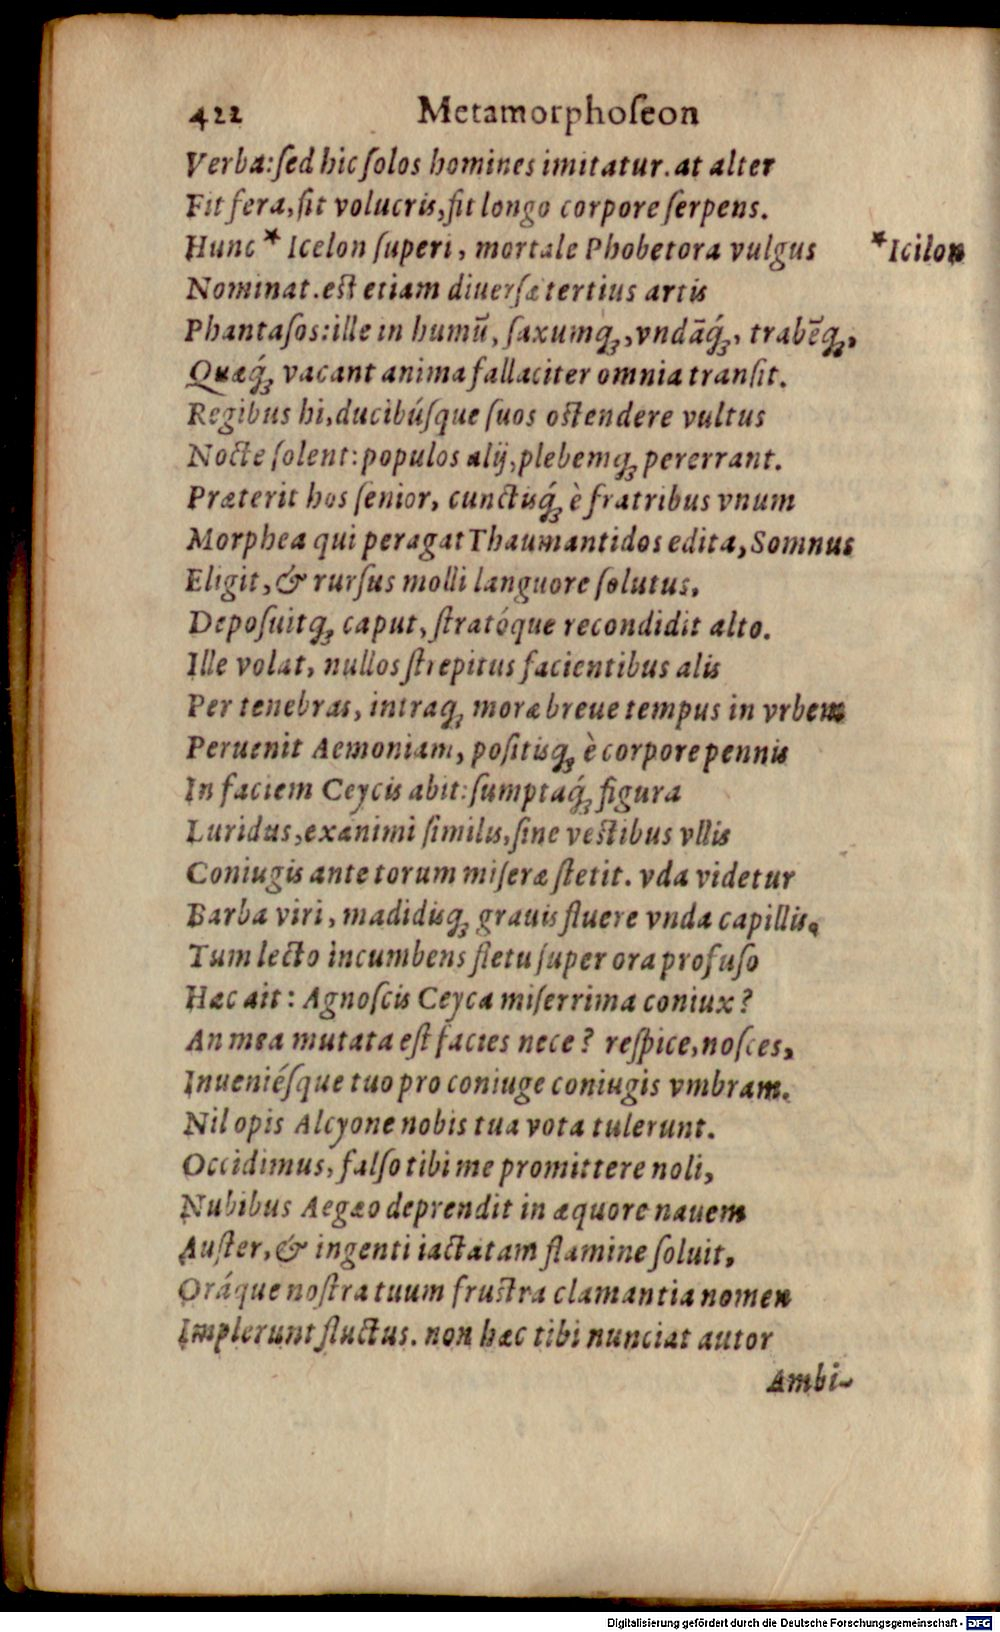 422 Metamorphoſeon
Verba: ſed hic ſolos homines imitatur. at alter
Fit fera, fit volucris, fit longo corpore ſerpens.
Hunc * Icelon ſuperi, mortale Phobetora vulgus *Icilon
Nominat. est etiam diuerſæ tertius artis
Phantaſos: ille in humū, ſaxumq́ꝫ, vndāq́ꝫ, trabēqꝫ,
Quæq́ꝫ vacant anima fallaciter omnia tranſit.
Regibus hi, ducibúſque ſuos ostendere vultus
Nocte ſolent: populos alij, plebemqꝫ pererrant.
Præterit hos ſenior, cunctisq́ꝫ è fratribus vnum
Morphea qui peragat Thaumantidos edita, Somnus
Eligit, & rurſus molli languore ſolutus,
Depoſuitqꝫ caput, ſtratóque recondidit alto.
Ille volat, nullos ſtrepitus facientibus alis
Per tenebras, intraqꝫ moræ breue tempus in vrbem
Peruenit Aemoniam, poſitisqꝫ è corpore pennis
In faciem Ceycis abit: ſumptaq́ꝫ figura
Luridus, exanimi ſimilis, ſine vestibus vllis
Coniugis ante torum miſeræ ſtetit. vda videtur
Barba viri, madidisqꝫ grauis fluere vnda capillis.
Tum lecto incumbens fletu ſuper ora profuſo
Hæc ait: Agnoſcis Ceyca miſerrima coniux?
An mea mutata eſt facies nece? reſpice, noſces,
Inueniéſque tuo pro coniuge coniugis vmbram.
Nil opis Alcyone nobis tua vota tulerunt.
Occidimus, falſo tibi me promittere noli,
Nubibus Aegæo deprendit in æquore nauem
Auſter, & ingenti iactatam flamine ſoluit,
Oráque noſtra tuum fruſtra clamantia nomen
Implerunt fluctus. non hæc tibi nunciat autor
Ambi-
Digitalisierung gefördert durch die Deutsche Forschungsgemeinschaft - DFG